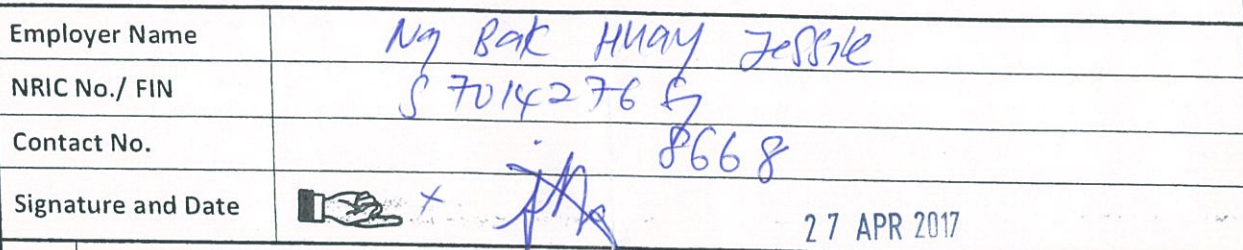 Employer Name Ng Bak Huay Jessie
NRIC No./ FIN S7014276G
Contact No. 8668
Signature and Date x 27 APR 2017